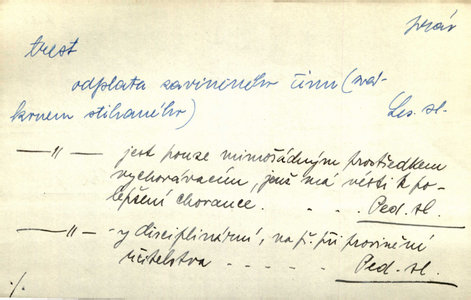 práv
trest
odplata zaviněného činu (zá-
konem stíhaného)
Les. sl.
—„— jest pouze mimořádným prostředkem
vychovávacím, jenž má vésti k po-
lepšení chovance. . . . . Ped. sl.
—„— -y disciplinární, na př. při provinění
učitelstva . . . . . Ped. sl.
·/.